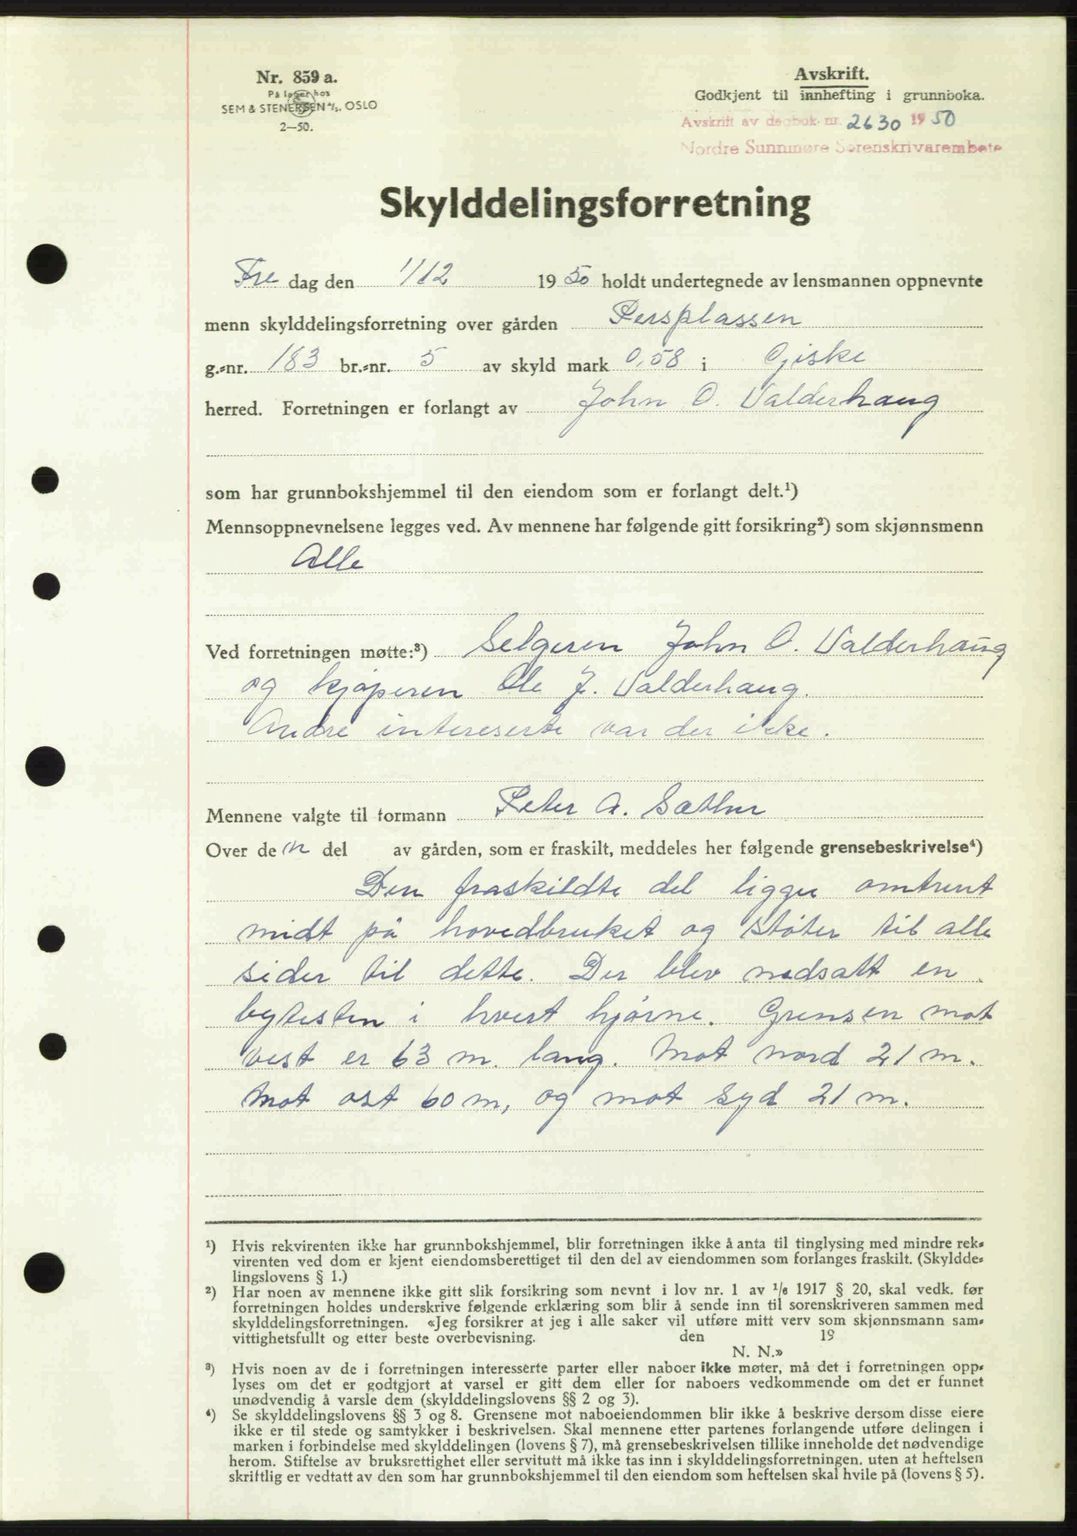 Nr. 859 a.
På lager hos
SEM & STENERSEN A/S, OSLO
2—50.
Avskrift.
Godkjent til innhefting i grunnboka.
Avskrift av dagbok nr. 2630 1950
Nordre Sunnmøre Sorenskrivarembete
Skylddelingsforretning
Fre dag den 1/12 1950 holdt undertegnede av lensmannen oppnevnte
menn skylddelingsforretning over gården Persplassen
g.-nr. 183 br.-nr. 5 av skyld mark 0,58 i Giske
herred. Forretningen er forlangt av John O. Valderhaug
som har grunnbokshjemmel til den eiendom som er forlangt delt.¹)
Mennsoppnevnelsene legges ved. Av mennene har følgende gitt forsikring²) som skjønnsmenn
Alle
Ved forretningen møtte:³) Selgeren John O. Valderhaug
og kjøperen Ole J. Valderhaug.
Andre intereserte var der ikke.
Mennene valgte til formann Peter A. Sæther
Over den del av gården, som er fraskilt, meddeles her følgende grensebeskrivelse⁴)
Den fraskildte del ligger omtrent
midt på hovedbruket og støter til alle
sider til dette. Der blev nedsatt en
bytesten i hvert hjørne. Grensen mot
vest er 63 m. lang. Mot nord 21 m.
Mot øst 60 m, og mot syd 21 m.
¹) Hvis rekvirenten ikke har grunnbokshjemmel, blir forretningen ikke å anta til tinglysing med mindre rek-
virenten ved dom er kjent eiendomsberettiget til den del av eiendommen som forlanges fraskilt. (Skyldde-
lingslovens § 1.)
²) Har noen av mennene ikke gitt slik forsikring som nevnt i lov nr. 1 av 1/6 1917 § 20, skal vedk. før
forretningen holdes underskrive følgende erklæring som blir å sende inn til sorenskriveren sammen med
skylddelingsforretningen. «Jeg forsikrer at jeg i alle saker vil utføre mitt verv som skjønnsmann sam-
vittighetsfullt og etter beste overbevisning. den 19
N. N.»
³) Hvis noen av de i forretningen interesserte parter eller naboer ikke møter, må det i forretningen opp-
lyses om det er godtgjort at varsel er gitt dem eller for naboers vedkommende om det er funnet
unødvendig å varsle dem (skylddelingslovens §§ 2 og 3).
⁴) Se skylddelingslovens §§ 3 og 8. Grensene mot naboeiendommen blir ikke å beskrive dersom disse eiere
ikke er til stede og samtykker i beskrivelsen. Skal mennene etter partenes forlangende utføre delingen i
marken i forbindelse med skylddelingen (lovens § 7), må grensebeskrivelsen tillike inneholde det nødvendige
herom. Stiftelse av bruksrettighet eller servitutt må ikke tas inn i skylddelingsforretningen, uten at heftelsen
skriftlig er vedtatt av den som har grunnbokshjemmel til den eiendom som heftelsen skal hvile på (lovens § 5).